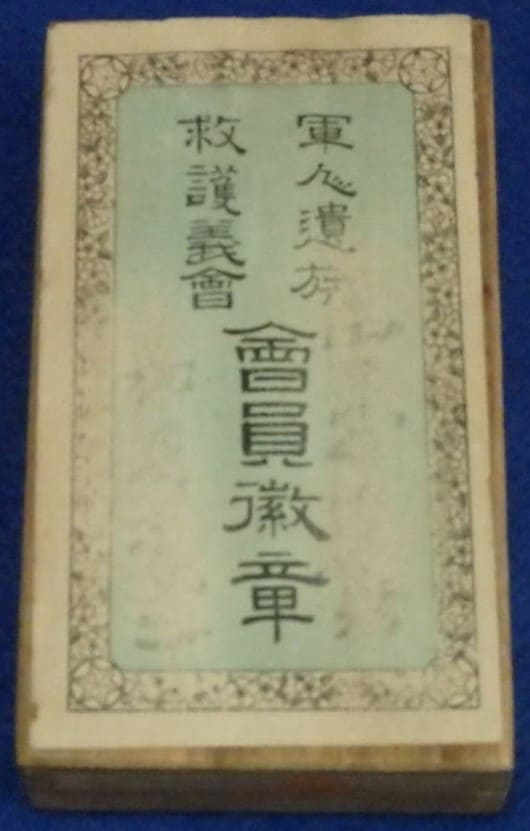 軍人遺族
救護義會
會員徽章